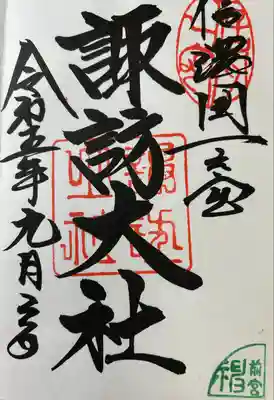 信濃國一之宮
諏訪大社
令和五年九月
前宮